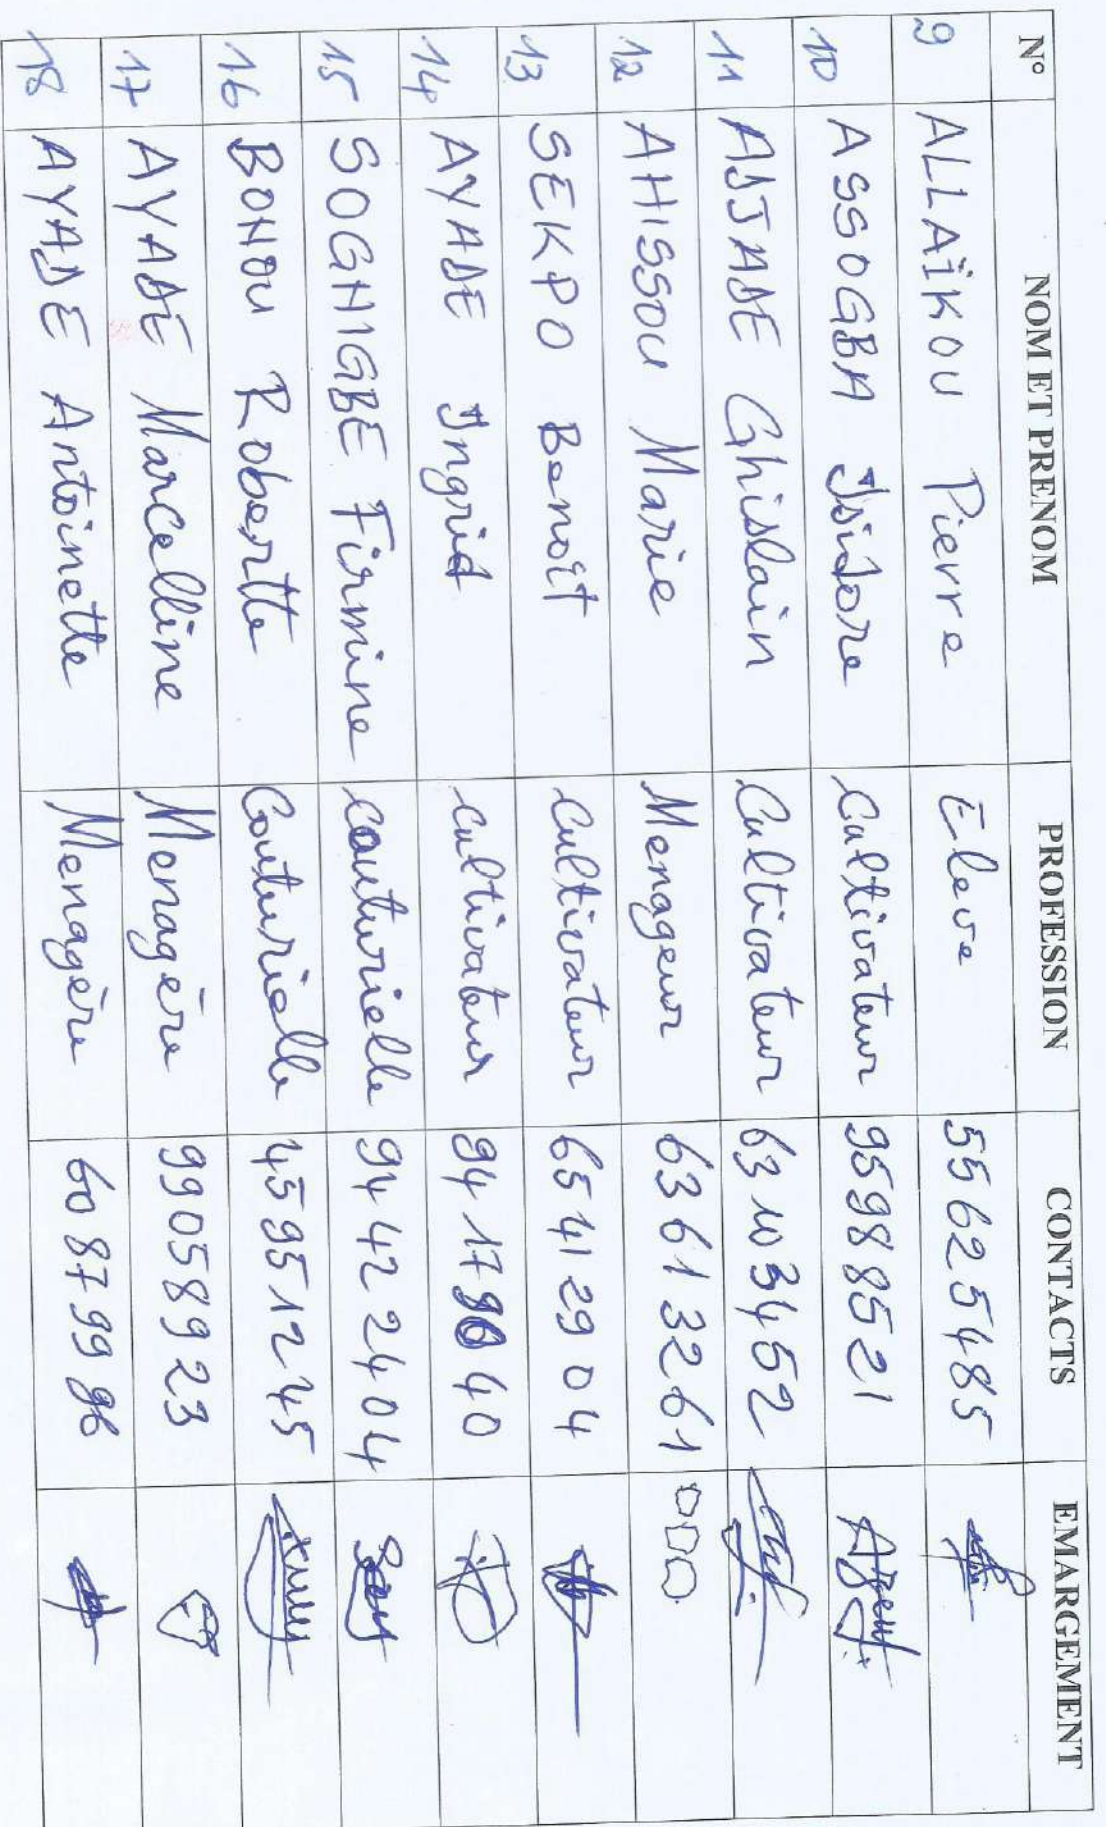 N° NOM ET PRENOM PROFESSION CONTACTS EMARGEMENT
9 ALLAÏKOU Pierre Eleve 55625485
10 ASSOGBA Isidore Cultivateur 95988521
11 ADJADE Ghislain Cultivateur 63103452
12 AHISSOU Marie Menageur 63613261
13 SEKPO Benoît Cultivateur 65412904
14 AYADE Ingrid Cultivateur
15 SOGHIGBE Firmine Couturielle 94422404
16 BONOU Robertte Couturielle 45951245
17 AYADE Marcelline Menagère 99058923
18 AYADE Antoinette Menagère 60879996